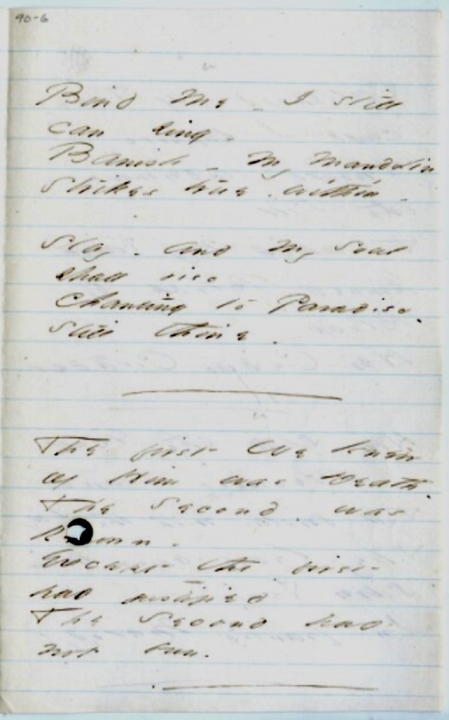 90-6
Bind me - I still
can sing -
Banish - my mandolin
Strikes true within -
Slay - and my Soul
shall rise
Chanting to Paradise -
Still thine -
The first We knew
of Him was Death -
The Second, was
Renown -
Except the first
had justified
The Second had
not been -